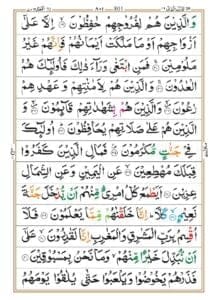 وَالَّذِينَ هُمْ لِفُرُوجِهِمْ حٰفِظُونَ ۙ إِلَّا عَلَىٰ
أَزْوَاجِهِمْ أَوْ مَا مَلَكَتْ أَيْمَانُهُمْ فَإِنَّهُمْ غَيْرُ
مَلُومِينَ ۚ فَمَنِ ابْتَغَىٰ وَرَآءَ ذٰلِكَ فَأُولٰٓئِكَ هُمُ
الْعٰدُونَ ۚ وَالَّذِينَ هُمْ لِأَمٰنٰتِهِمْ وَعَهْدِهِمْ
رٰعُونَ ۙ وَالَّذِينَ هُمْ بِشَهٰدٰتِهِمْ قَآئِمُونَ ۙ وَ
الَّذِينَ هُمْ عَلَىٰ صَلَاتِهِمْ يُحَافِظُونَ ۗ أُولٰٓئِكَ
فِي جَنّٰتٍ مُّكْرَمُونَ ۗ فَمَالِ الَّذِينَ كَفَرُوا
قِبَلَكَ مُهْطِعِينَ ۙ عَنِ الْيَمِينِ وَعَنِ الشِّمَالِ
عِزِينَ ۞ أَيَطْمَعُ كُلُّ امْرِئٍ مِّنْهُمْ أَنْ يُّدْخَلَ جَنَّةَ
نَعِيمٍ ۙ كَلَّا ۗ إِنَّا خَلَقْنٰهُمْ مِّمَّا يَعْلَمُونَ ۞ فَلَآ
أُقْسِمُ بِرَبِّ الْمَشٰرِقِ وَالْمَغٰرِبِ إِنَّا لَقٰدِرُونَ ۙ عَلَىٰٓ
أَنْ نُّبَدِّلَ خَيْرًا مِّنْهُمْ ۙ وَمَا نَحْنُ بِمَسْبُوقِينَ ۞
فَذَرْهُمْ يَخُوضُوا وَيَلْعَبُوا حَتّٰى يُلٰقُوا يَوْمَهُمُ